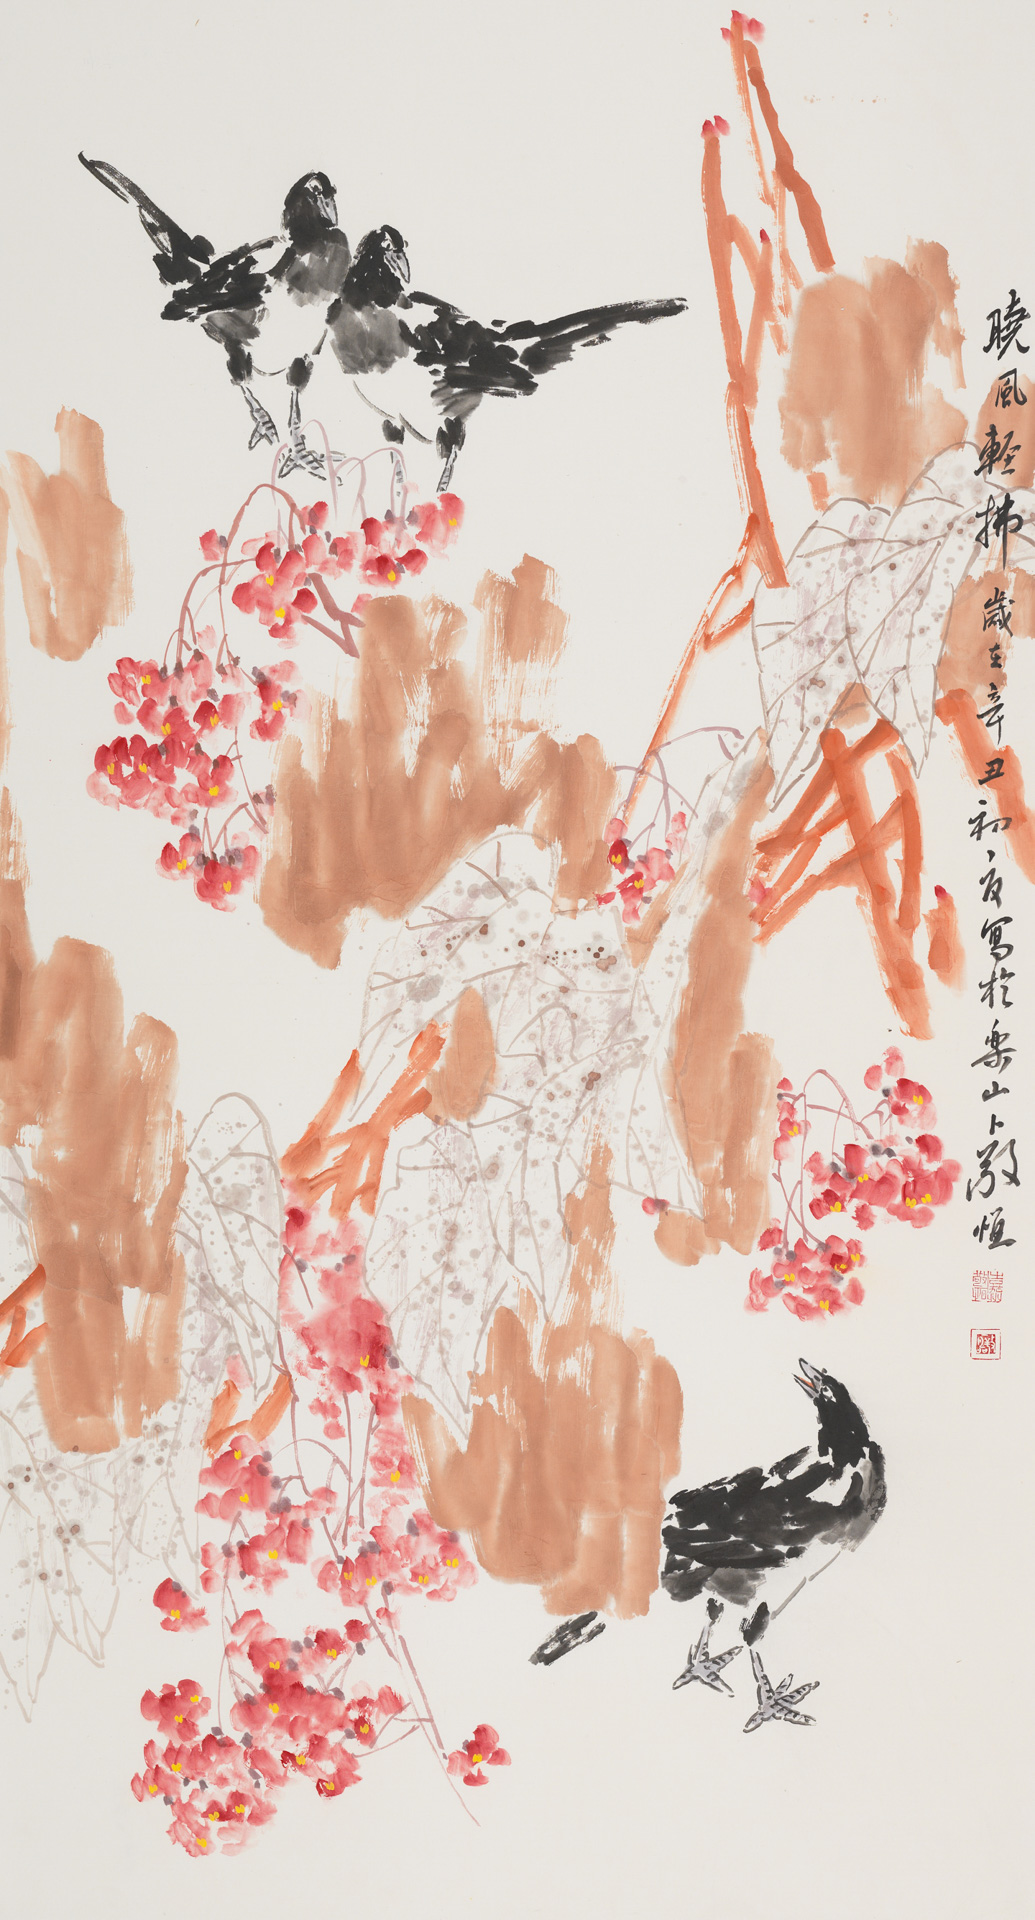 晓風輕拂歲在辛丑初夏寫於樂山卜敬恒